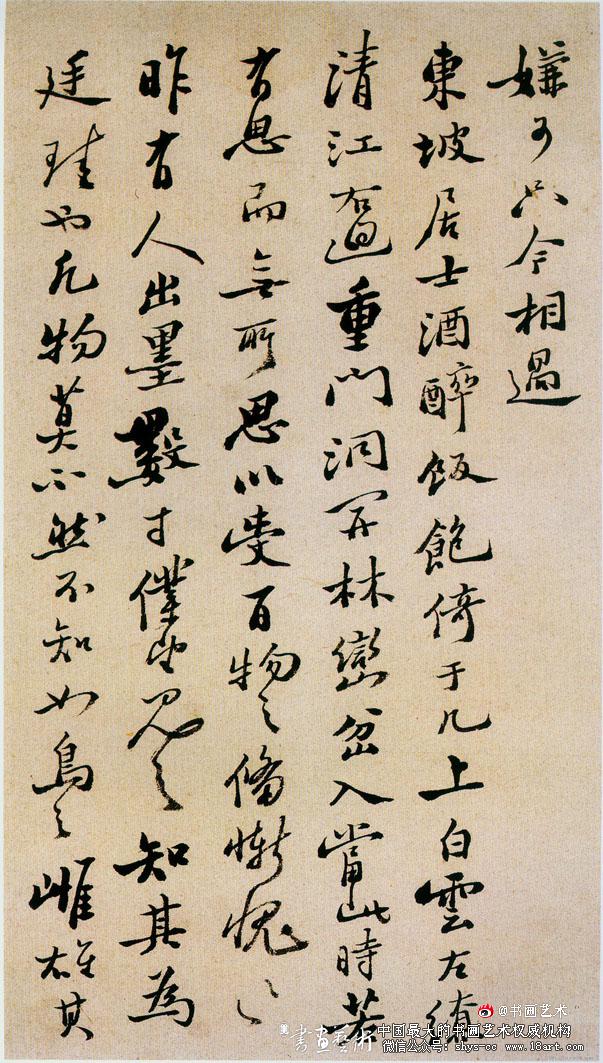 嫌可只令相過
東坡居士酒醉飯飽倚于几上白雲左繚
清江右洄重門洞開林巒岔入當此時若
有思而無所思以受百物之備慚愧慚愧
昨有人出墨數寸僕望見之知其為
廷珪也凡物莫不然不知如鳥之雌雄其
@书画艺术
書畫藝術 中国最大的书画艺术权威机构
微信公众号：shys-cc www.18art.com